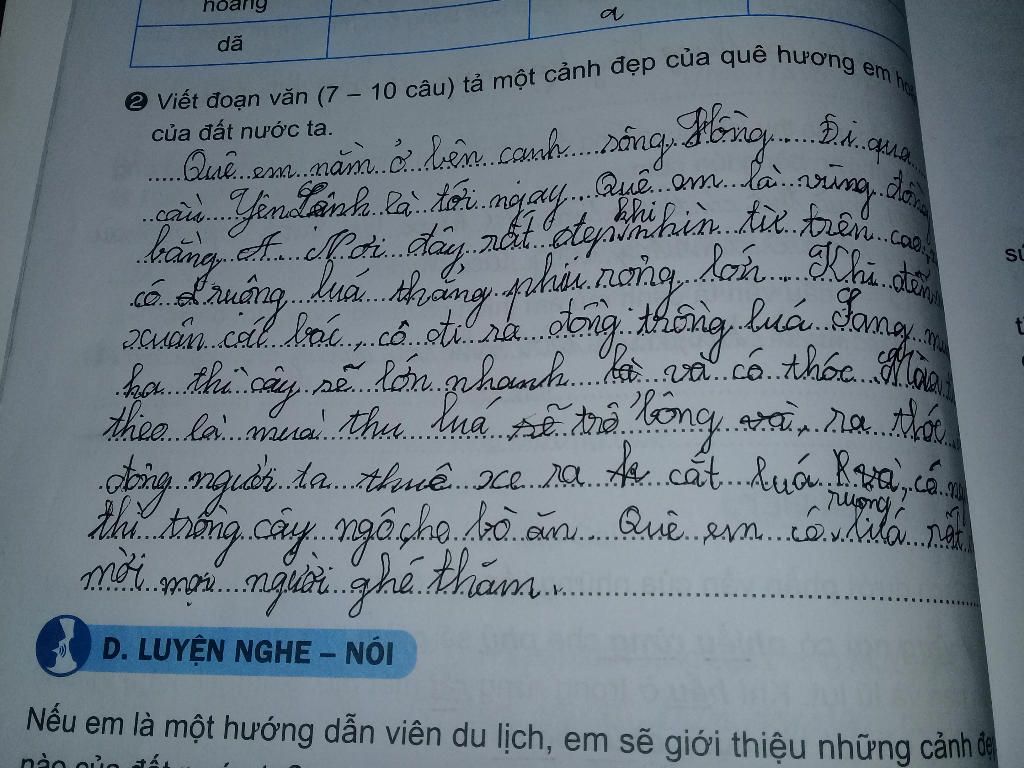 hoang
a
dã
❷ Viết đoạn văn (7 – 10 câu) tả một cảnh đẹp của quê hương em
của đất nước ta.
Quê em nằm ở bên cạnh sông Hồng. Đi qua
cầu Yên Lệnh là tới ngay. Quê em là vùng đồng
bằng. Nơi đây rất đẹp khi nhìn từ trên cao,
có ruộng luá thẳng phiú rông lớn. Khi đến
xuân các bác, cô đi ra đồng trồng luá. Sang
hạ thì cây sẽ lớn nhanh và có thóc. Mùa
theo là muà thu luá trổ bông, ra thóc
đông người ta thuê xe ra cắt luá và, có
thì trồng cây ngô cho bò ăn. Quê em có ruộng luá rất
mời mọi người ghé thăm.
D. LUYỆN NGHE – NÓI
Nếu em là một hướng dẫn viên du lịch, em sẽ giới thiệu những cảnh
nào của đất nước ta?